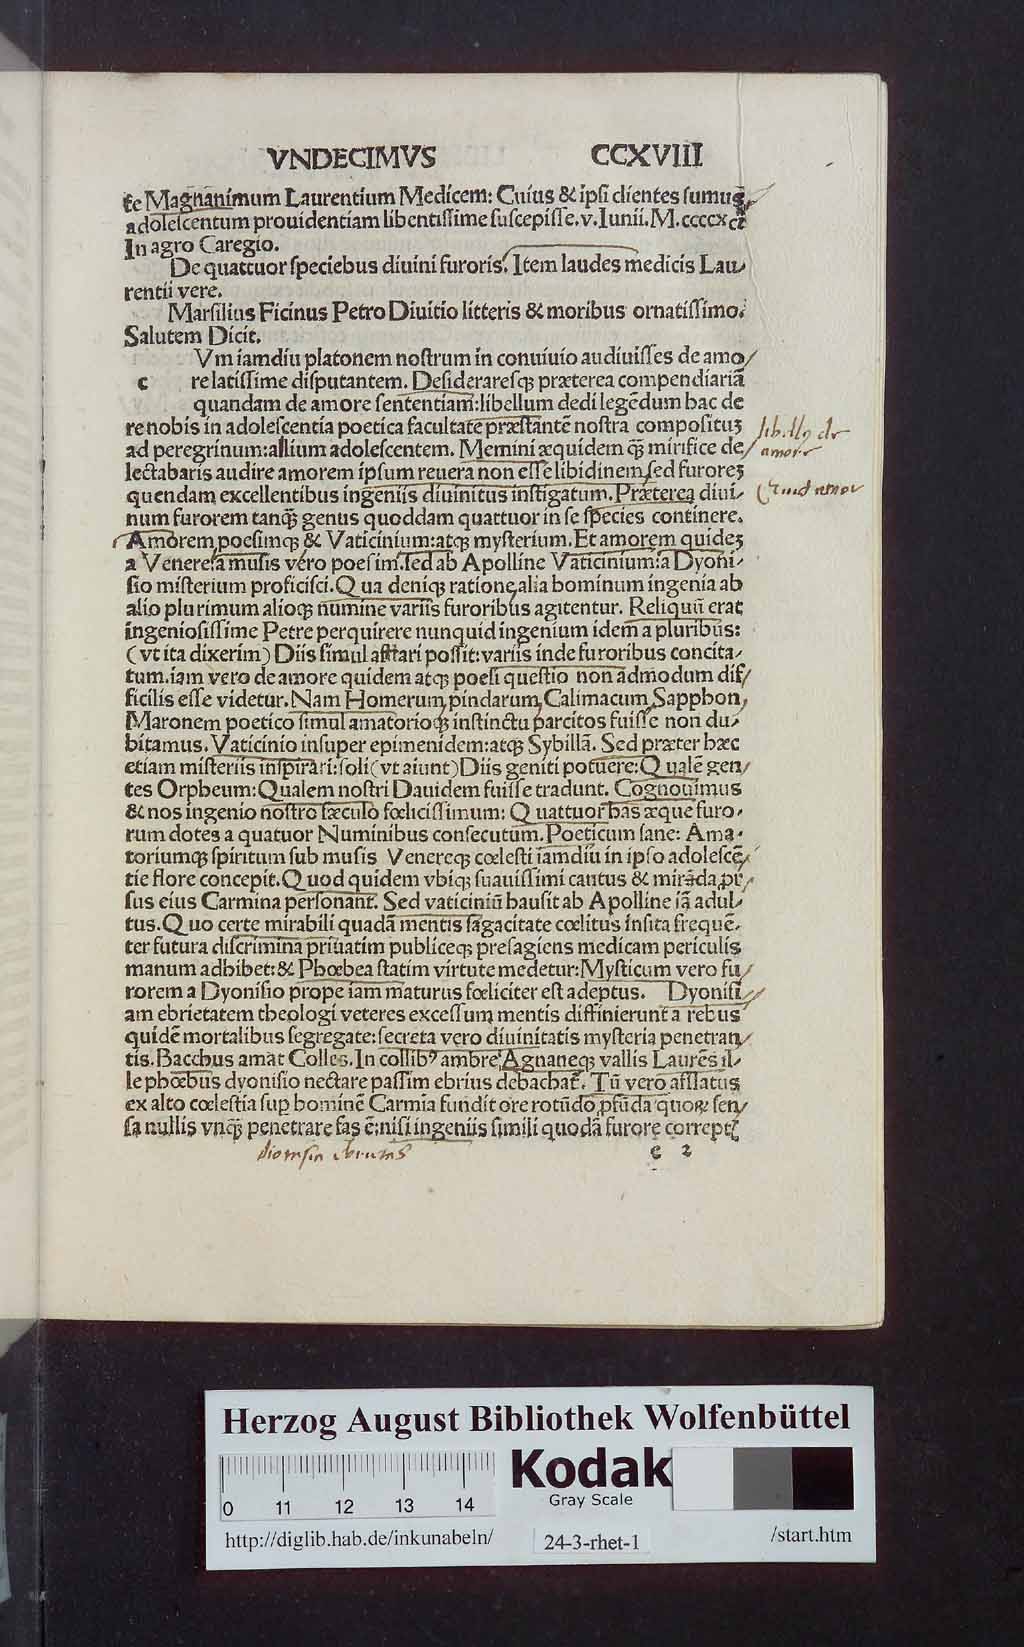 VNDECIMVS CCXVIII
te Magnanimum Laurentium Medicem: Cuius & ipsi clientes sumus,
adolescentum prouidentiam libentissime suscepisse. v. Iunii. M. ccccxci
In agro Caregio.
De quattuor speciebus diuini furoris. Item laudes medicis Lau-
rentii vere.
Marsilius Ficinus Petro Diuitio litteris & moribus ornatissimo.
Salutem Dicit.
Vm iamdiu platonem nostrum in conuiuio audiuisses de amo/
c re latissime disputantem. Desideraresqȝ præterea compendiariā
quandam de amore sententiam: libellum dedi legēdum hac de
re nobis in adolescentia poetica facultate præstantē nostra composituȝ
ad peregrinum: allium adolescentem. Memini æquidem qȝ̄ mirifice de/
lectabaris audire amorem ipsum reuera non esse libidinem, sed furoreȝ
quendam excellentibus ingeniis diuinitus instigatum. Præterea diui-
num furorem tanqȝ̄ genus quoddam quattuor in se species continere.
Amorem, poesimqȝ & Vaticinium: atqȝ mysterium. Et amorem quideȝ
a Venere, a musis vero poesim. sed ab Apolline Vaticinium: a Dyoni-
sio misterium proficisci. Qua deniqȝ ratione, alia hominum ingenia ab
alio plurimum alioqȝ numine variis furoribus agitentur. Reliquū erat
ingeniosissime Petre perquirere nunquid ingenium idem a pluribus:
(vt ita dixerim) Diis simul afflari possit: variis inde furoribus concita-
tum. iam vero de amore quidem atqȝ poesi questio non admodum dif/
ficilis esse videtur. Nam Homerum, pindarum, Calimacum, Sapphon,
Maronem poetico simul amatorioqȝ instinctu parcitos fuisse non du-
bitamus. Vaticinio insuper epimenidem: atqȝ Sybillā. Sed præter hæc
etiam misteriis inspirari: soli (vt aiunt) Diis geniti potuere: Qualē gen/
tes Orpheum: Qualem nostri Dauidem fuisse tradunt. Cognouimus
& nos ingenio nostro sæculo fœlicissimum: Quattuor has æque furo-
rum dotes a quatuor Numinibus consecutum. Poeticum sane: Ama-
toriumqȝ spiritum sub musis Venereqȝ cœlesti iamdiu in ipso adolescē/
tie flore concepit. Quod quidem vbiqȝ suauissimi cantus & mirāda, pr/
sus eius Carmina personant. Sed vaticiniū hausit ab Apolline iā adul-
tus. Quo certe mirabili quadā mentis sagacitate cœlitus insita frequē-
ter futura discrimina priuatim publiceqȝ presagiens medicam periculis
manum adhibet: & Phœbea statim virtute medetur: Mysticum vero fu/
rorem a Dyonisio prope iam maturus fœliciter est adeptus. Dyonisi/
am ebrietatem theologi veteres excessum mentis diffinierunt a rebus
quidē mortalibus segregate: secreta vero diuinitatis mysteria penetran/
tis. Bacchus amat Colles. In collibꝰ ambre, Agnaneqȝ vallis Laurēs il-
le phœbus dyonisio nectare passim ebrius debachat̄. Tū vero afflatus
ex alto cœlestia sup̲ hominē Carmīa fundit ore rotūdo, p̲fūda quoꝝ sen/
sa nullis vnqȝ̄ penetrare fas ē: nisi ingeniis simili quodā furore corrept̲
e 2
libellus de
amore
Quid amor
dionisia ebrietas
Herzog August Bibliothek Wolfenbüttel
0 11 12 13 14
Kodak
Gray Scale
http://diglib.hab.de/inkunabeln/
24-3-rhet-1
/start.htm